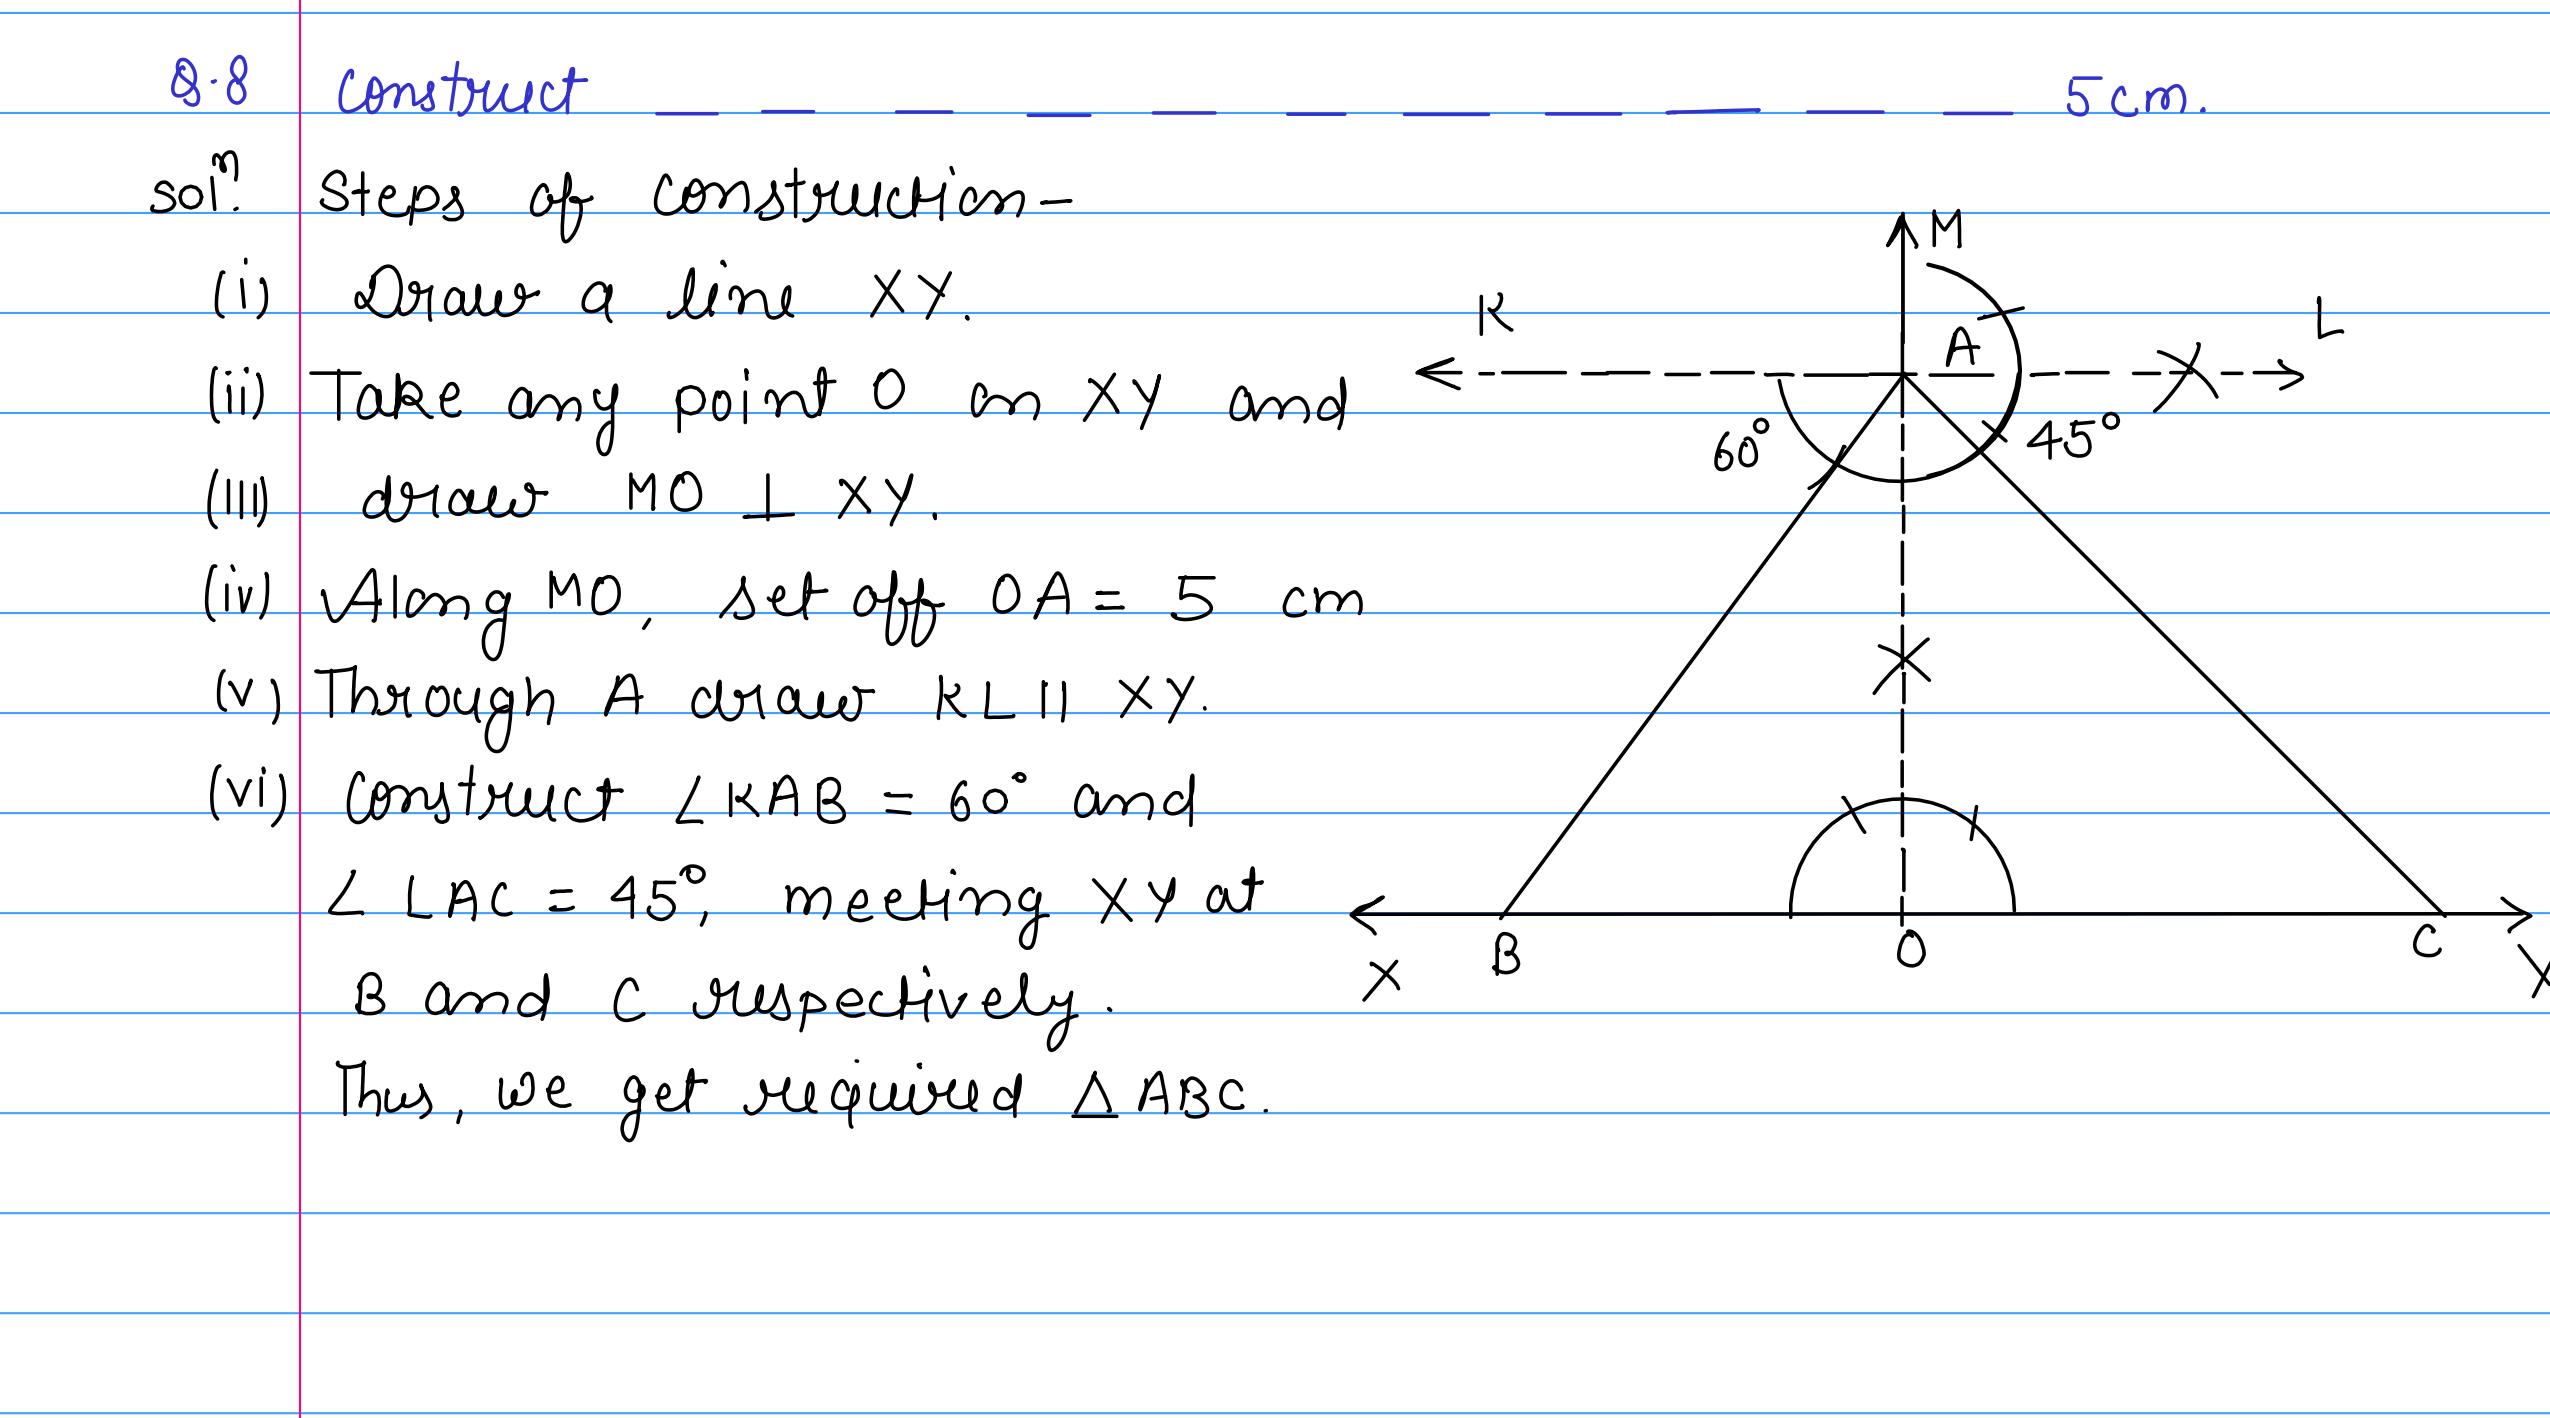 Q.8 Construct _ _ _ _ _ _ _ _ _ _ _ 5 cm.
solⁿ. Steps of construction-
(i) Draw a line XY.
(ii) Take any point O on XY and
(iii) draw MO ⊥ XY.
(iv) Along MO, set off OA = 5 cm
(v) Through A draw KL || XY.
(vi) Construct ∠KAB = 60° and
∠LAC = 45°, meeting XY at
B and C respectively.
Thus, we get required △ABC.
M
K A L
60° 45°
X B O C Y